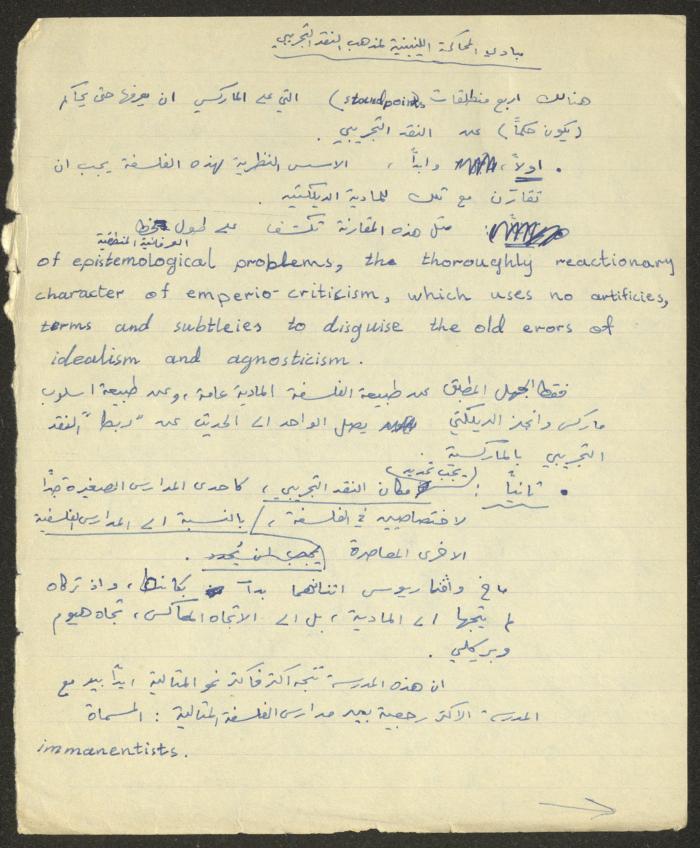 مبادئ المحاكمة اللينينية لمذهب النقد التجريبي
هنالك اربع منطلقات (standpoints) التي على الماركسي ان يعرفها حتى يحاكم
(يكون حكماً) عن النقد التجريبي.
• اولاً، وابداً، الاسس النظرية لهذه الفلسفة يجب ان
تقارن مع تلك للمادية الديلكتيه.
مثل هذه المقارنة تكشف على طول خط
العرفانية المنطقية
of epistemological problems, the thoroughly reactionary
character of emperio-criticism, which uses no artificies,
terms and subtleies to disguise the old erors of
idealism and agnosticism.
فقط الجهل المطلق عن طبيعة الفلسفة المادية عامة، وعن طبيعة اسلوب
ماركس وانجلز الديلكتي يصل الواحد الى الحديث عن "ربط" النقد
التجريبي بالماركسية
• ثانياً: (يجب تحديد) مكان النقد التجريبي، كاحدى المدارس الصغيرة جداً
لاختصاصيين في الفلسفة، بالنسبة الى المدارس الفلسفية
الاخرى المعاصرة يجب ان يُحدد.
ماخ وافناريوس اثنانهما بدآ بكانط، واذ تركاه
لم يتجها الى المادية، بل الى الاتجاه المعاكس، تجاه هيوم
وبركلي.
ان هذه المدرسة تتجه اكثر فاكثر نحو المثالية، يداً بيد مع
المدرسة الاكثر رجعية بعيد مدارس الفلسفة المثالية: المسماة
immanentists.